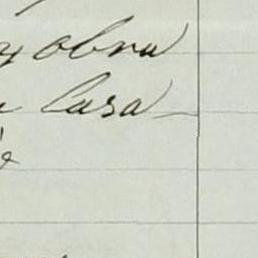 y obra
casa